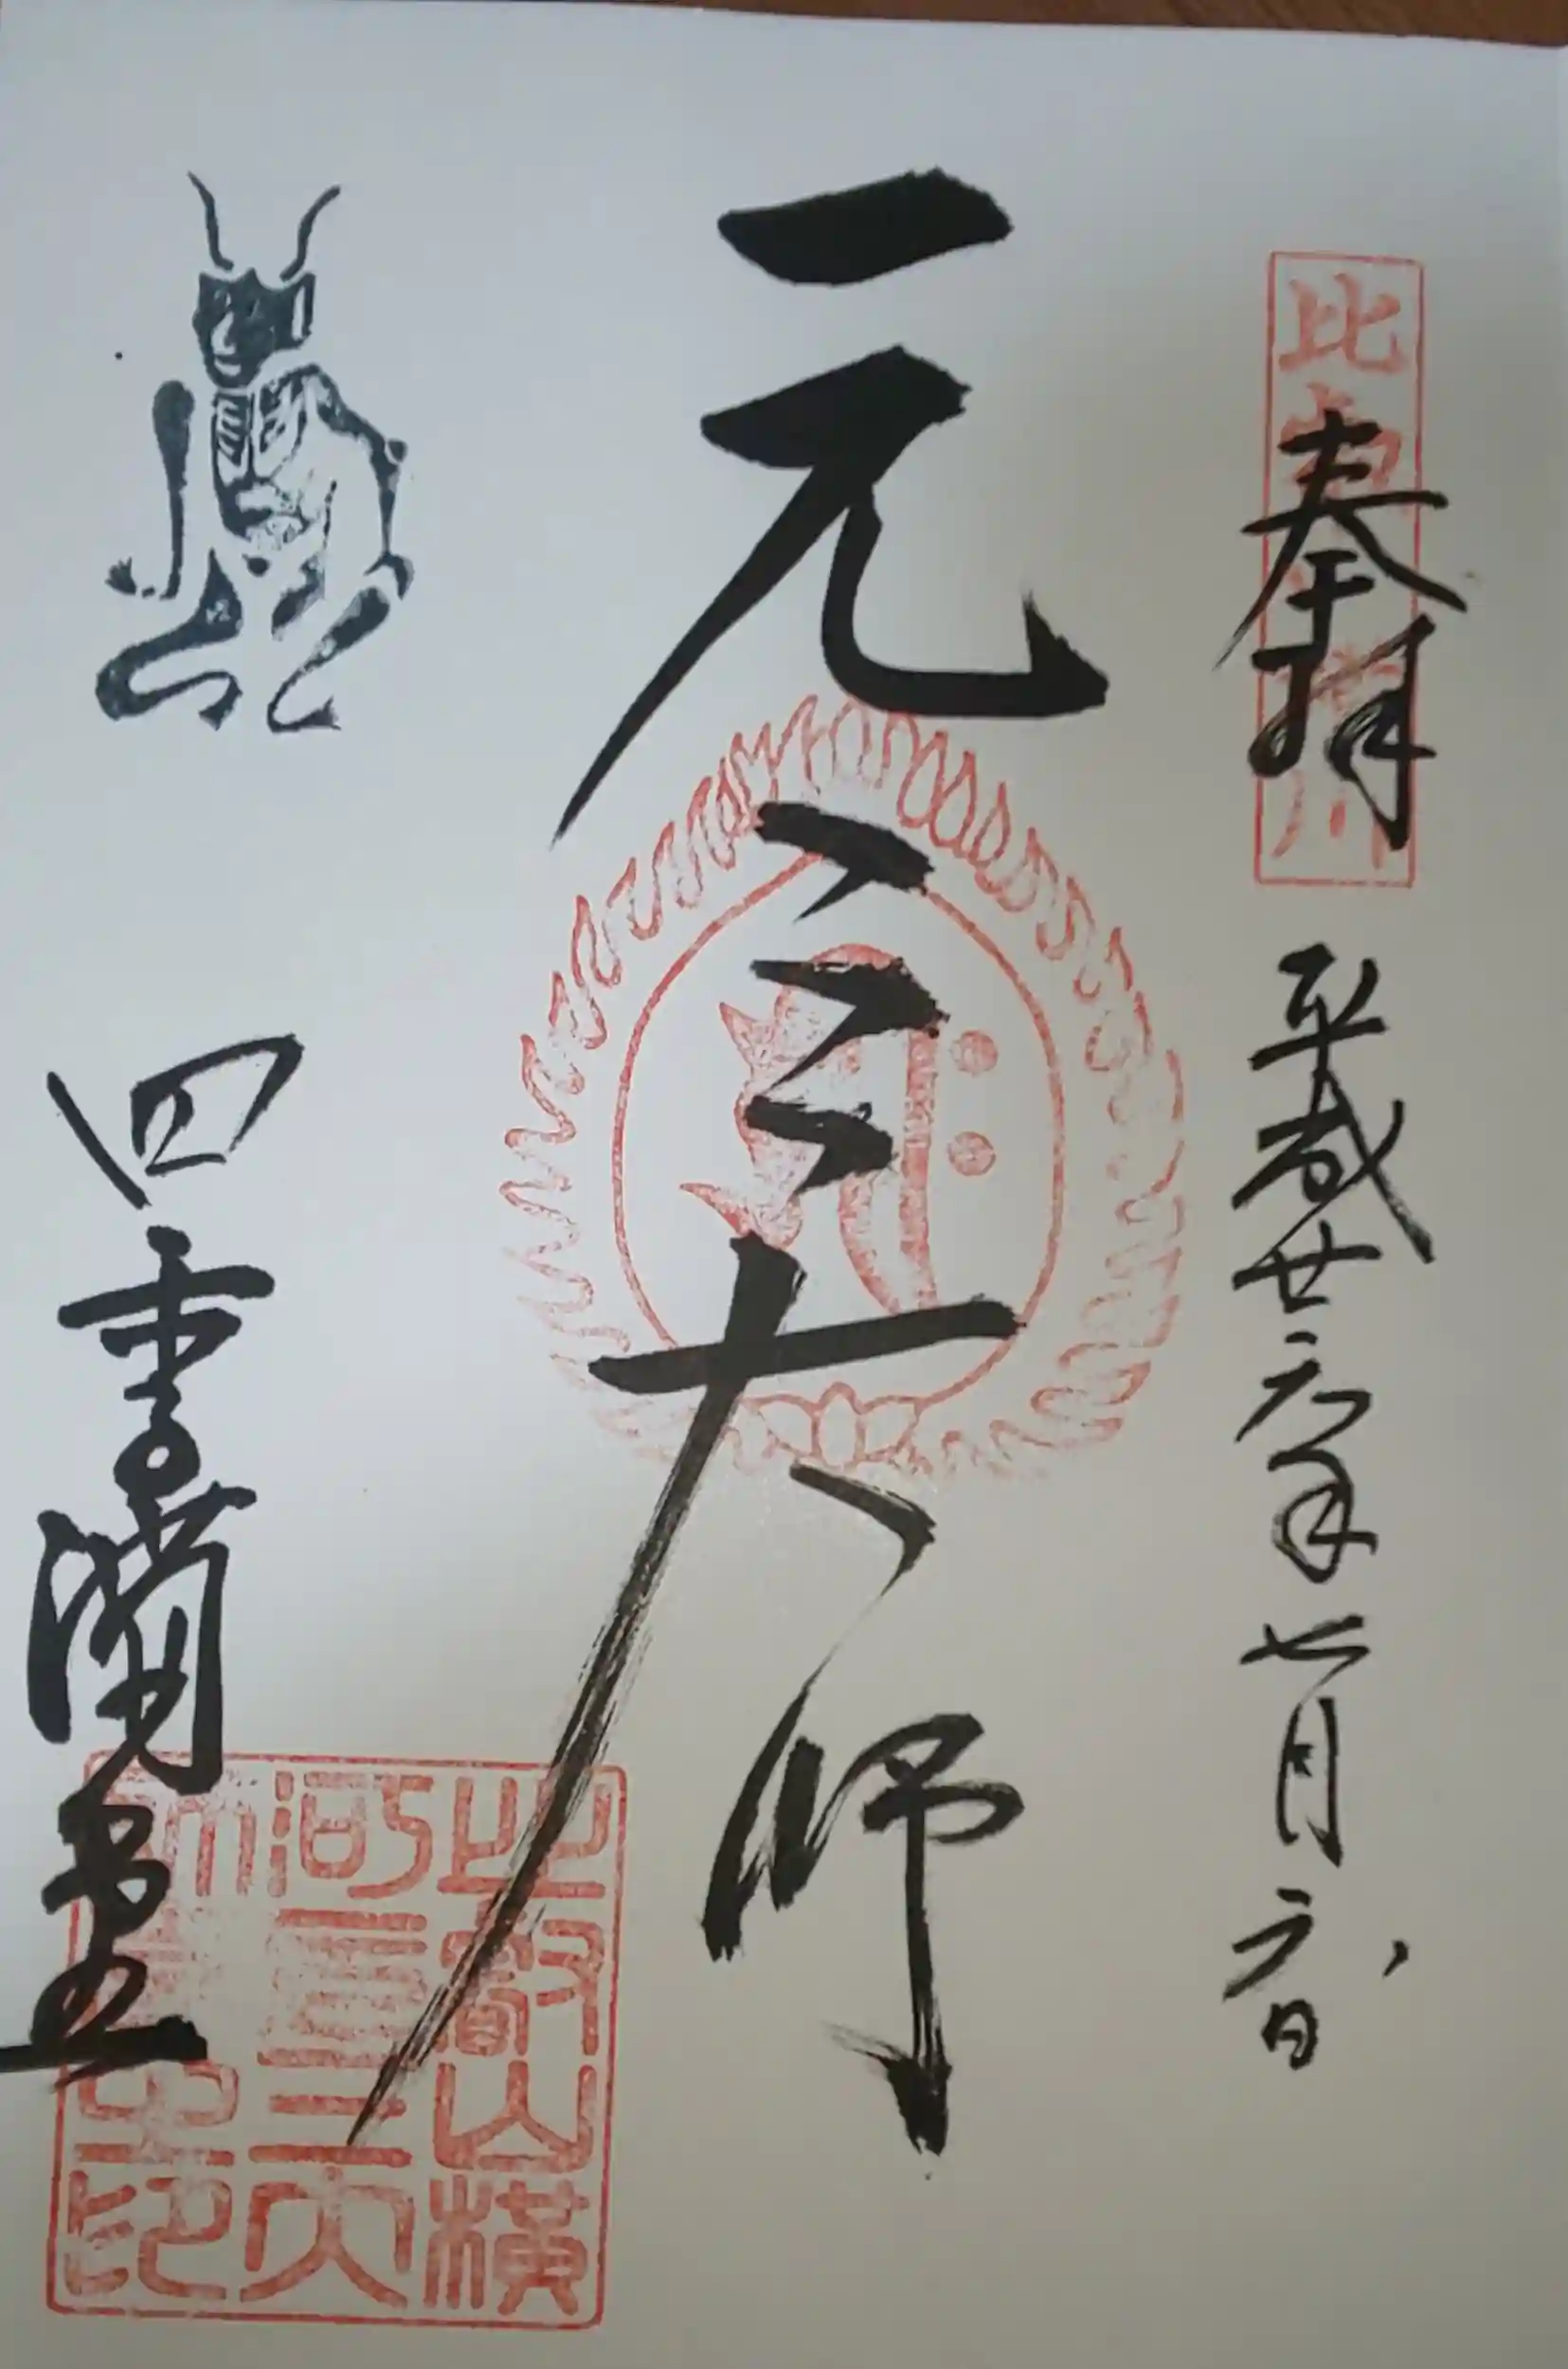 奉拝
平成廿六年七月六日
元三大師
四季講堂
比叡山横川
比叡山横
河元三大
師
印